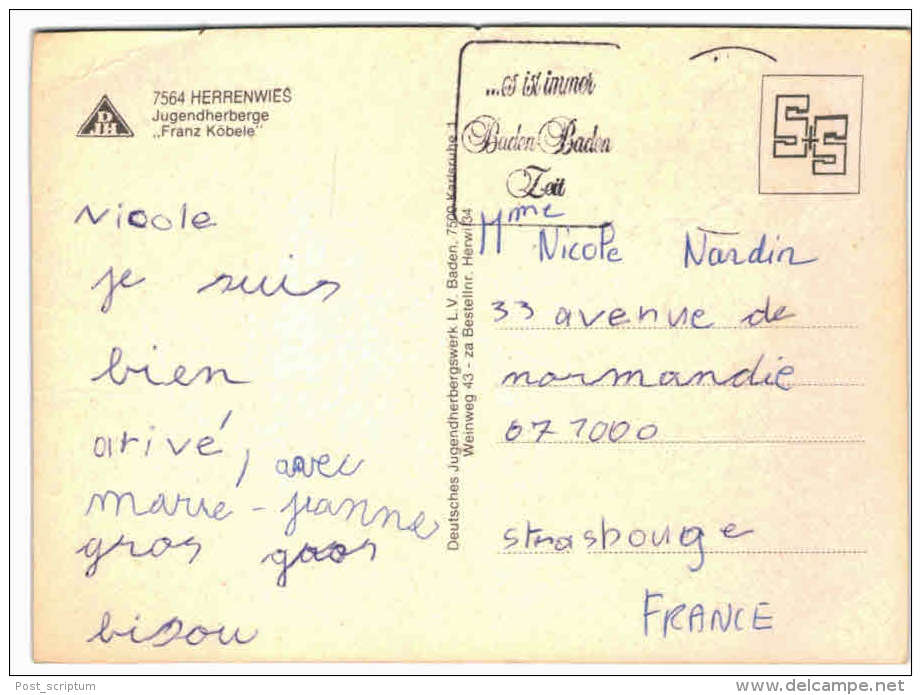 7564 HERRENWIES
Jugendherberge
„Franz Köbele"
DJH
...es ist immer
Baden-Baden
Zeit
Nicole
je suis
bien
arivé, avec
marie-jeanne
gros gros
bisou
Deutsches Jugendherbergswerk L.V. Baden, 7500 Karlsruhe 1
Weinweg 43 - za Bestellnr. Herwi 34
Mme Nicole Nardin
33 avenue de
normandie
671000
strasbouge
FRANCE
Post_scriptum
www.delcampe.net